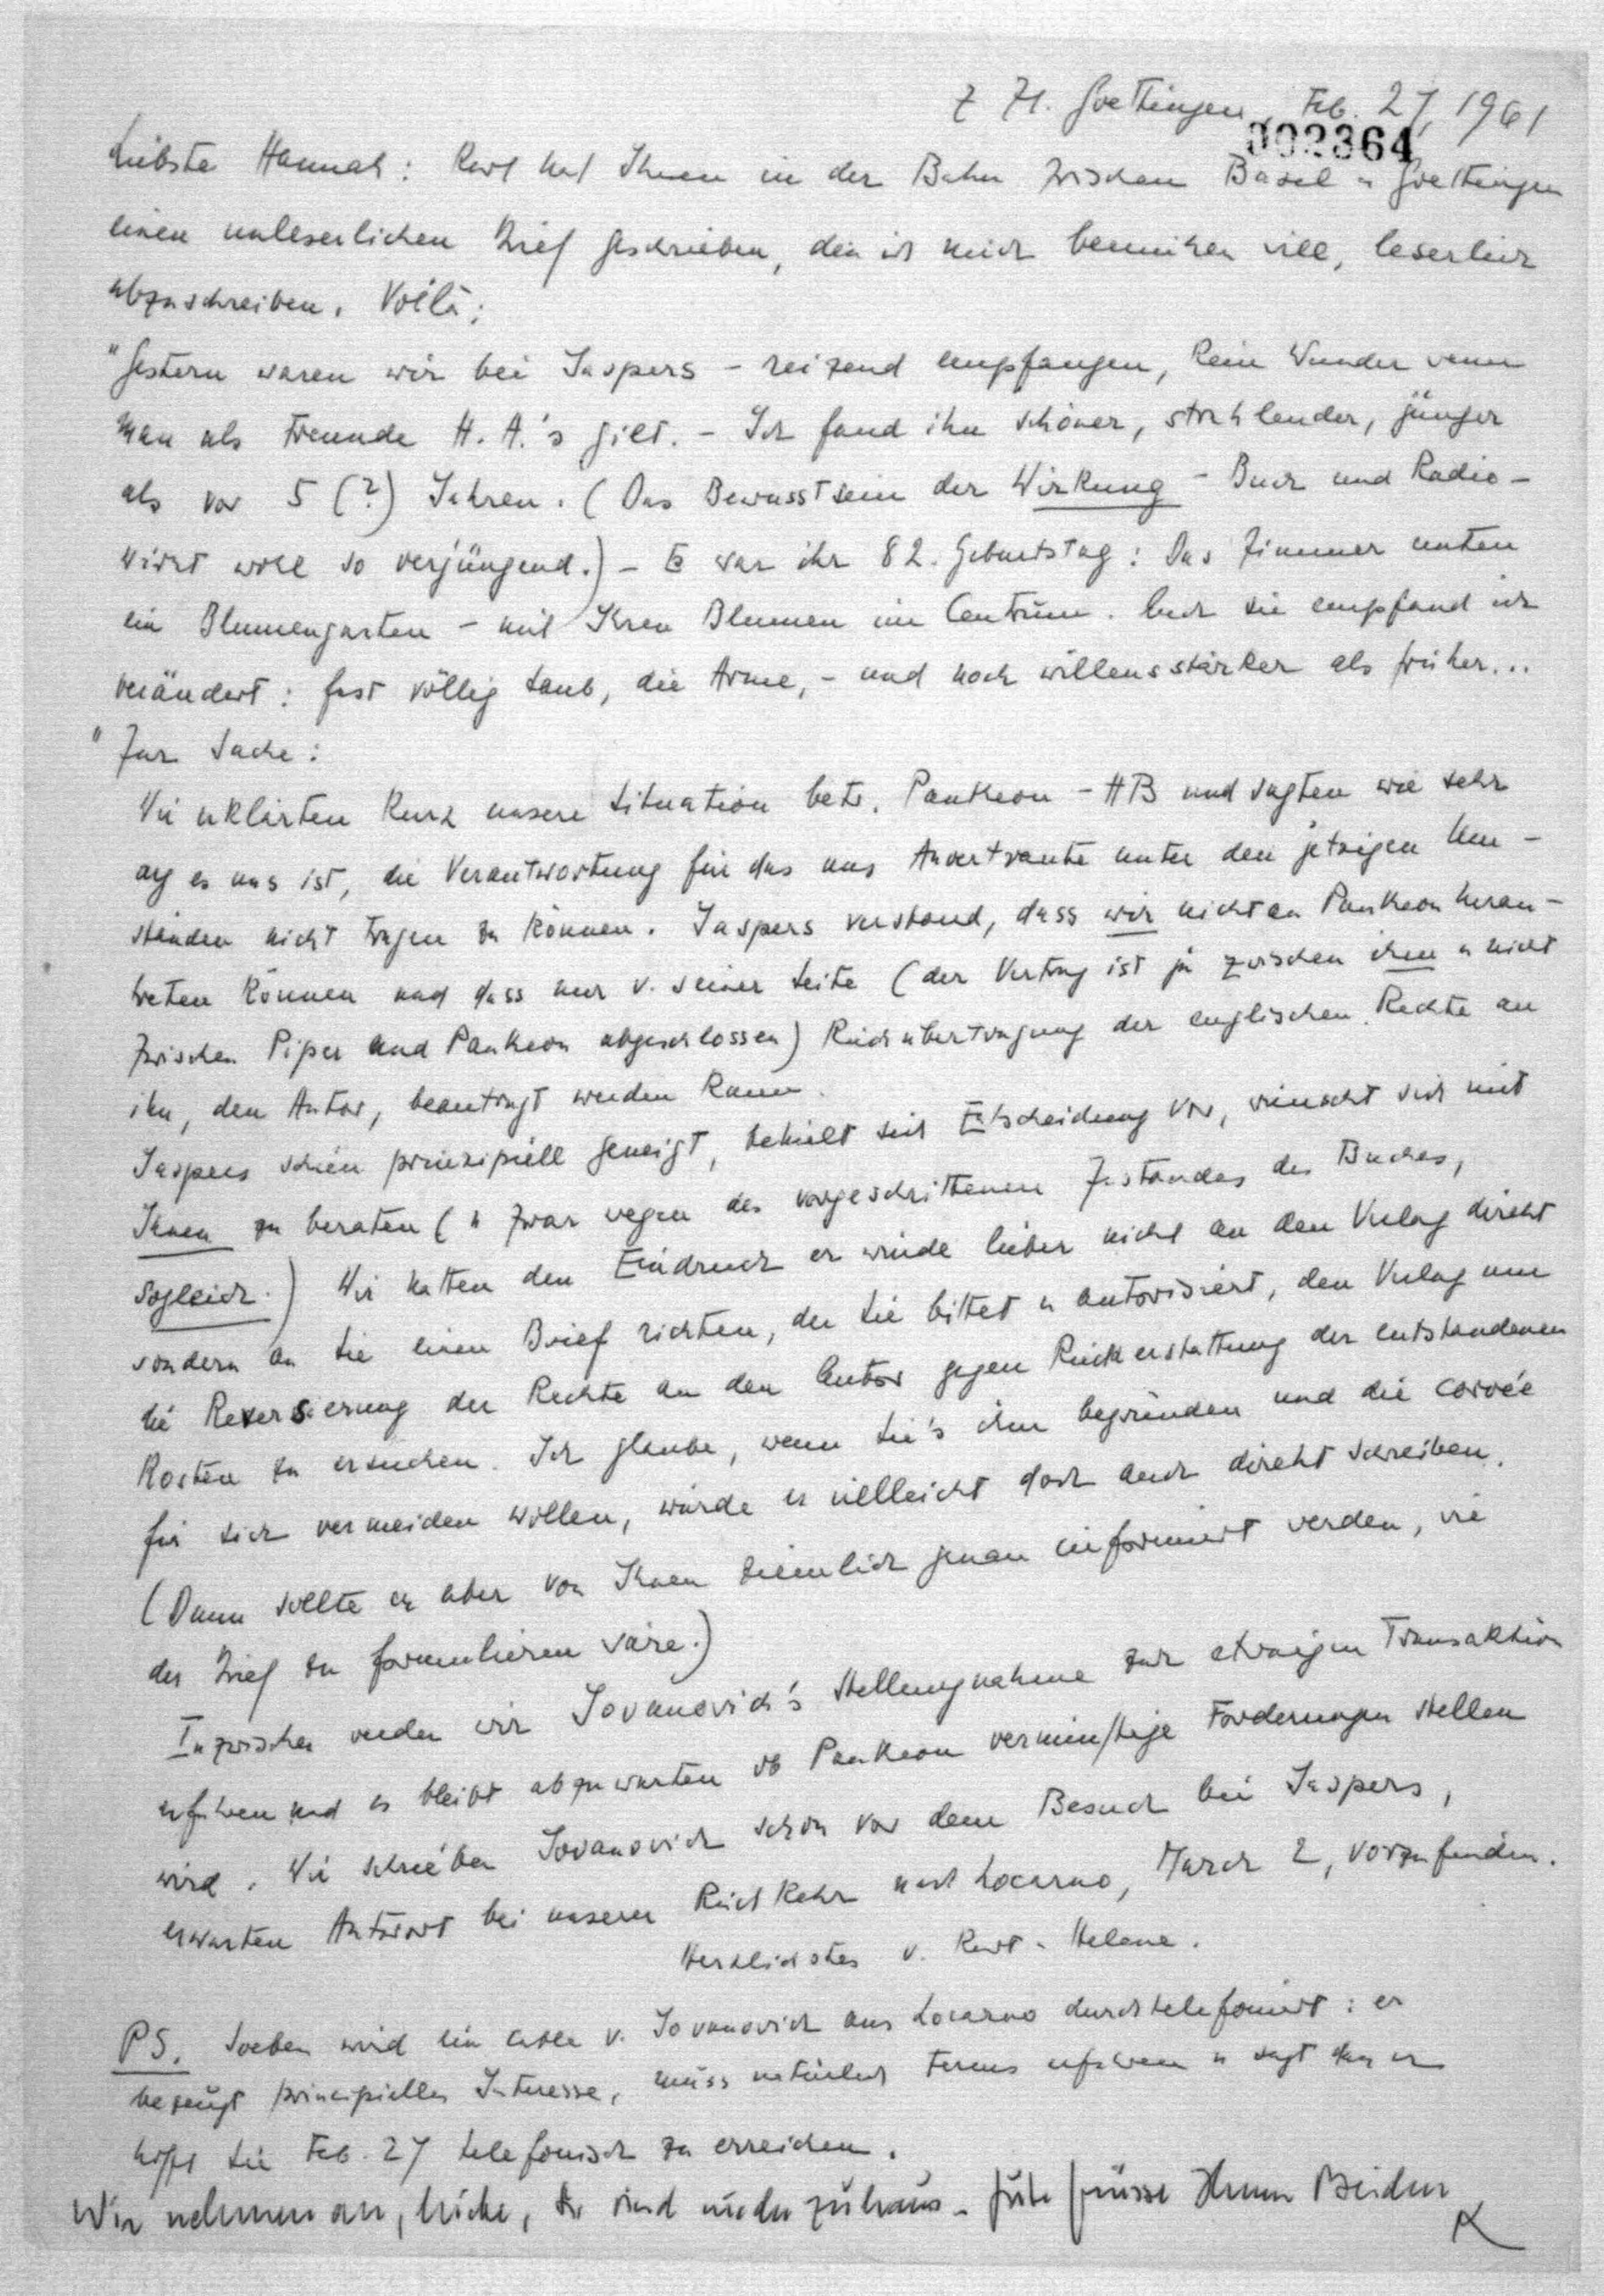 z Zt. Goettingen, Feb. 27, 1961
002364
Liebste Hannah: Kurt hat Ihnen in der Bahn zwischen Basel u Goettingen
einen unleserlichen Brief geschrieben, den ich mich bemühen will, leserlich
abzuschreiben. Voilà:
"Gestern waren wir bei Jaspers – reizend empfangen, kein Wunder wenn
man als Freunde H. A.'s gilt. – Ich fand ihn schöner, strahlender, jünger
als vor 5 (?) Jahren. (Das Bewusstsein der Wirkung – Buch und Radio –
wirkt wohl so verjüngend.) – Es war ihr 82. Geburtstag: Das Zimmer unten
ein Blumengarten – mit Ihren Blumen im Centrum. Auch sie empfand ich
verändert: fast völlig taub, die Arme, – und noch willensstärker als früher...
"Zur Sache:
Wir erklärten kurz unsere Situation betr. Pantheon – HB und sagten wie sehr
arg es uns ist, die Verantwortung für das uns Anvertraute unter den jetzigen Um-
ständen nicht tragen zu können. Jaspers verstand, dass wir nicht an Pantheon heran-
treten können und dass nur v. seiner Seite (der Vertrag ist ja zwischen ihm u nicht
zwischen Piper und Pantheon abgeschlossen) Rückübertragung der englischen Rechte an
ihn, den Autor, beantragt werden kann.
Jaspers schien prinzipiell geneigt, behielt sich Entscheidung vor, wünscht sich mit
Ihnen zu beraten (u zwar wegen des vorgeschrittenen Zustandes des Buches,
sogleich.) Wir hatten den Eindruck er würde lieber nicht an den Verlag direkt
sondern an Sie einen Brief richten, der Sie bittet u autorisiert, den Verlag um
die Reversierung der Rechte an den Autor gegen Rückerstattung der entstandenen
Kosten zu ersuchen. Ich glaube, wenn Sie's ihm begründen und die corvée
für sich vermeiden wollen, würde er vielleicht doch auch direkt schreiben.
(Dann sollte er aber von Ihnen ziemlich genau informiert werden, wie
der Brief zu formulieren wäre.)
Inzwischen werden wir Jovanovich's Stellungnahme zur etwaigen Transaktion
erfahren und es bleibt abzuwarten ob Pantheon vernünftige Forderungen stellen
wird. Wir schrieben Jovanovich schon vor dem Besuch bei Jaspers,
erwarten Antwort bei unserer Rückkehr nach Locarno, March 2, vorzufinden.
Herzlichstes v. Kurt u Helene.
PS. Soeben wird ein Cable v. Jovanovich aus Locarno durchtelefoniert: er
bezeugt principielles Interesse, muss natürlich terms erfahren u sagt dass er
hofft Sie Feb. 27 telefonisch zu erreichen.
Wir nehmen an, Sie sind wieder zuhaus – Gute Grüsse Ihnen Beiden
K